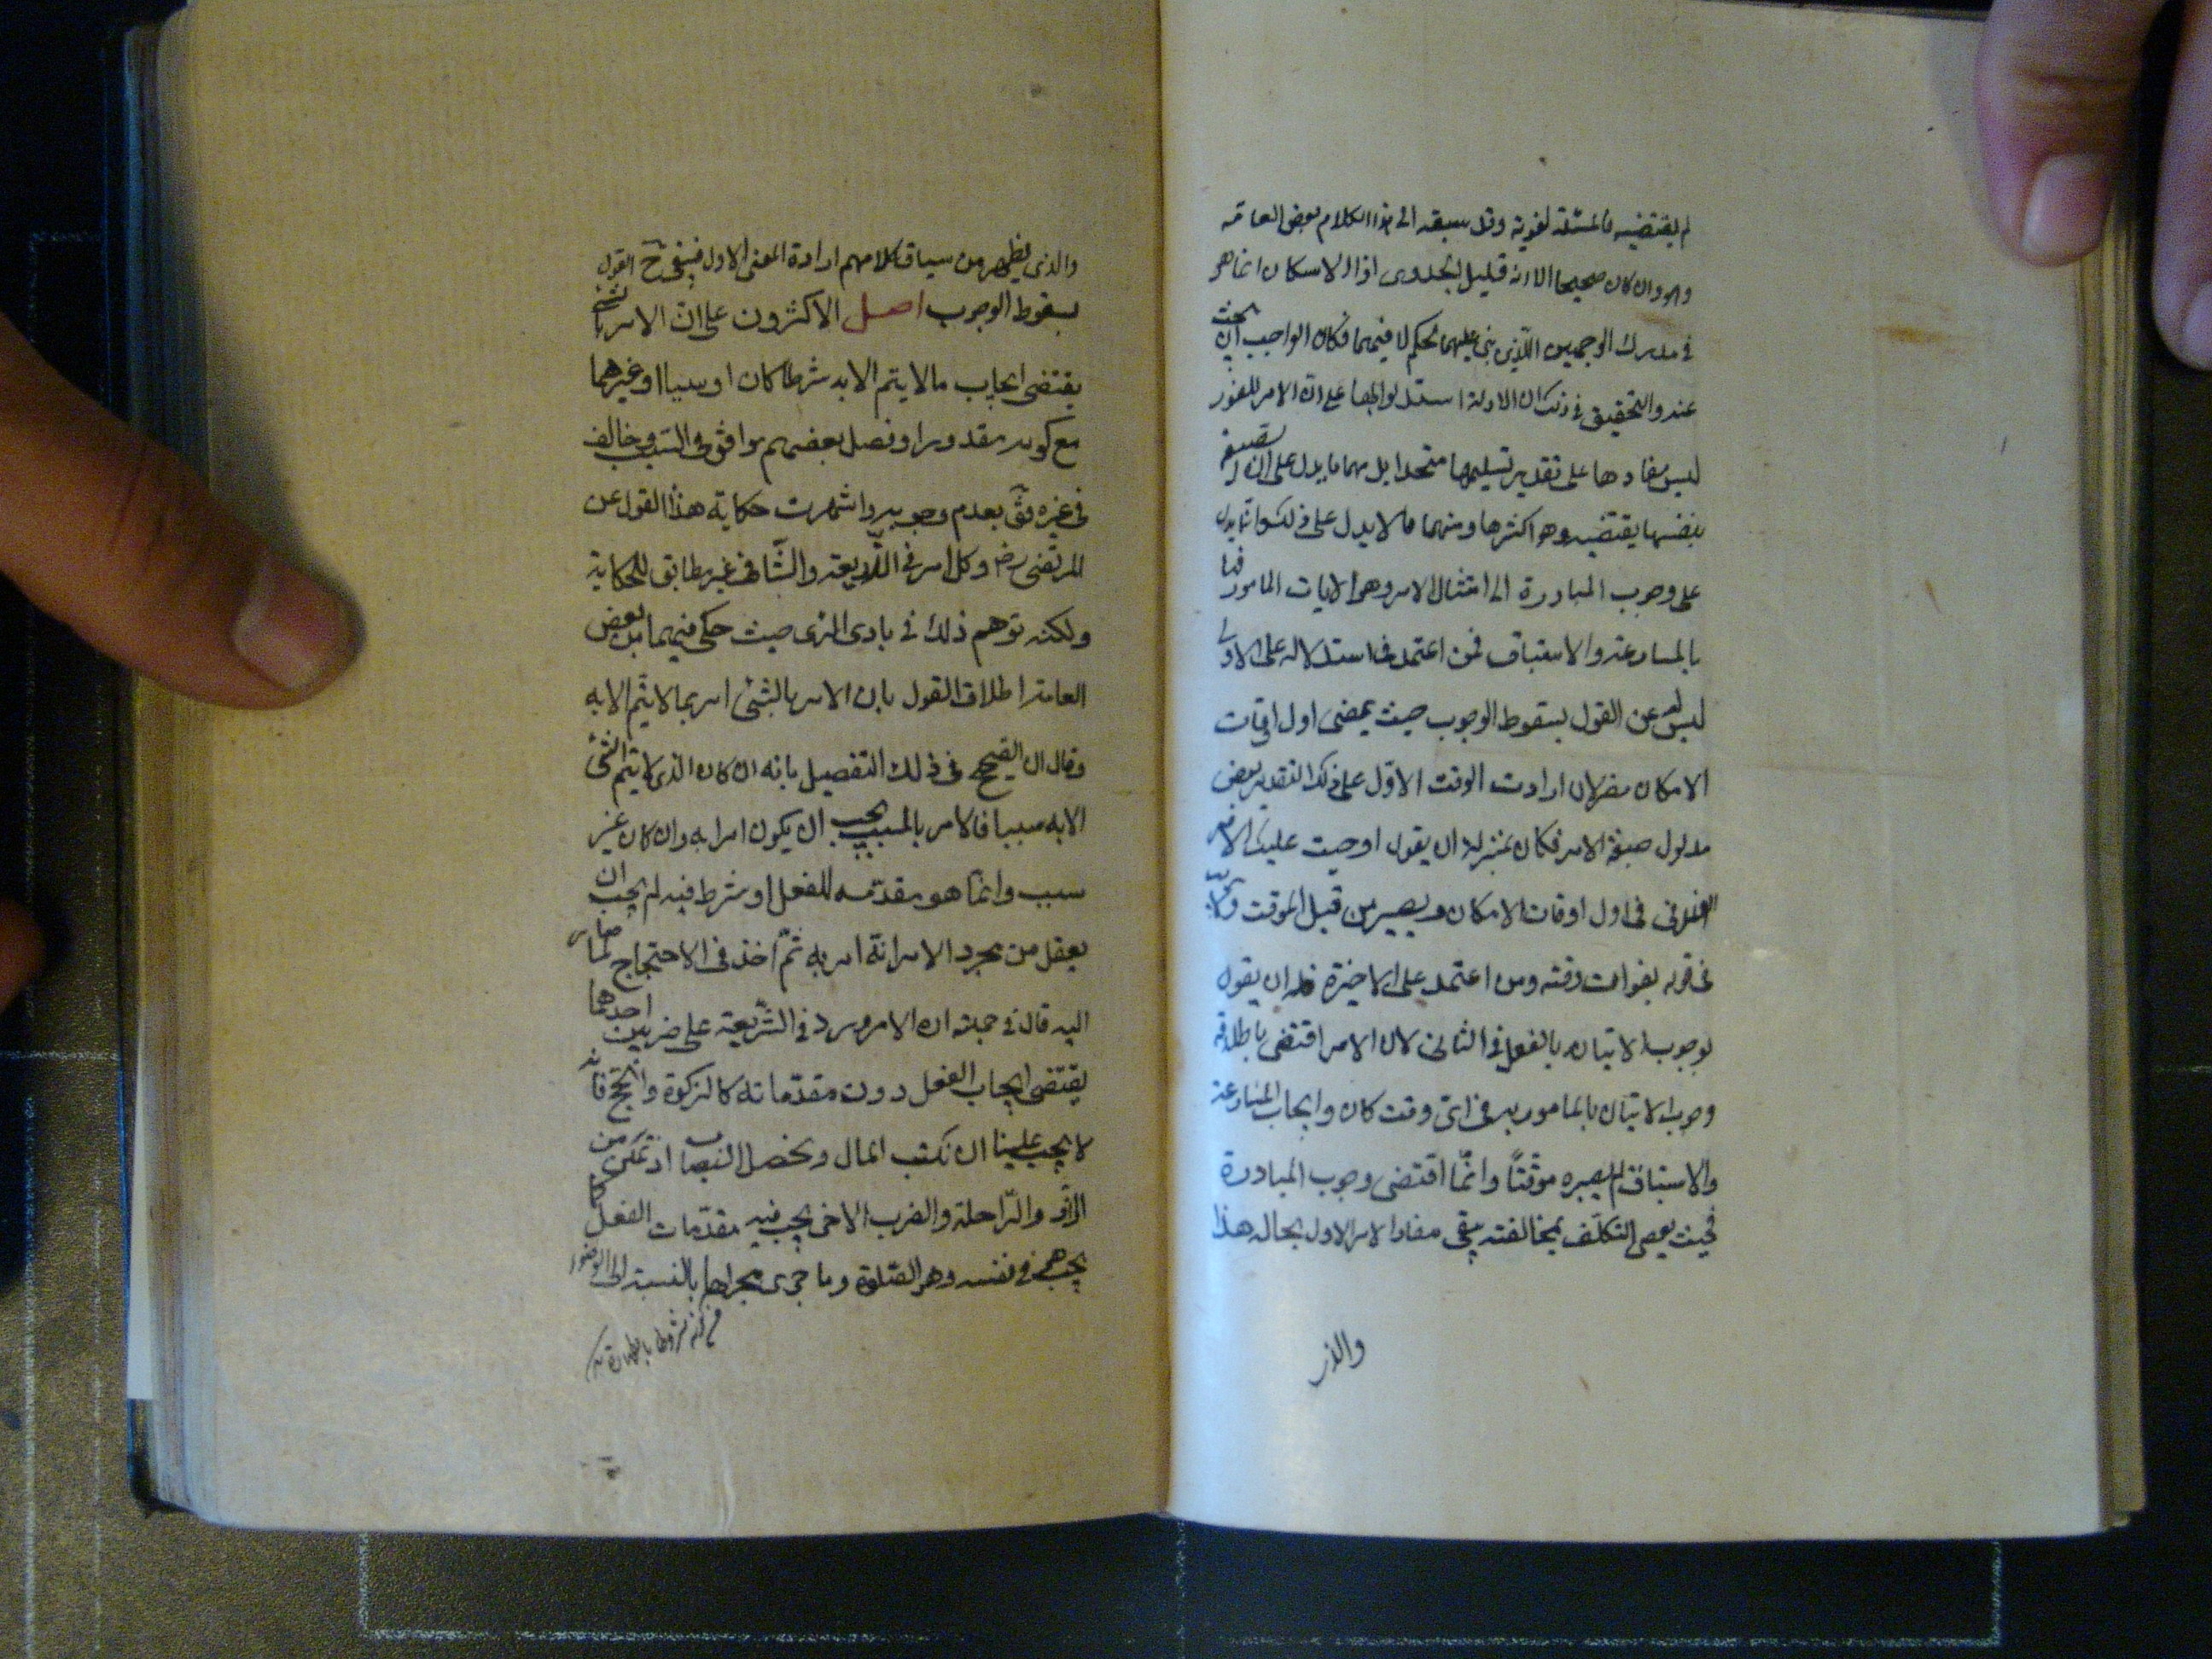 لم يقتضيه فالمسئلة لغوية وقد سبقه الى هذا الكلام بعض العامة
وهو وان كان صحيحا الا انه قليل الجدوى اذ الاشكان انما هو
فى مدرك الوجهين الذين بنى عليهما الحكم لا فيهما فكان الواجب ان يبحث
عنه والتحقيق فى ذلك ان الادلة استدلوا بها على ان الامر للفور
ليس مفادها على تقدير تسليمها متحدا بل منها ما يدل على ان الصيغة
بنفسها يقتضيه وهو اكثرها ومنها ما لا يدل على ذلك وانما يدل
على وجوب المبادرة الى امتثال الامر وهو الايات المامور فيها
بالمسارعة والاستباق فمن اعتمد فى استدلاله على الاولى
ليس له عن القول بسقوط الوجوب حيث يمضى اول اوقات
الامكان مفر لان ارادت الوقت الاول على ذلك التقدير بعض
مدلول صيغة الامر فكان بمنزلة ان يقول اوجبت عليك الامر
الفلانى فى اول اوقات الامكان ويصير من قبيل الموقت ولا ريب
فى فوته بفوات وقته ومن اعتمد على الاخيرة فله ان يقول
بوجوب الاتيان بالفعل فى الثانى لان الامر اقتضى باطلاقه
وجوب الاتيان بالمامور به فى اى وقت كان وايجاب المسارعة
والاستباق لم يصيره موقتاً وانما اقتضى وجوب المبادرة
فحيث يعصى المكلف بمخالفته يبقى مفاد الامر الاول بحاله هذا
والذى
والذى يظهر من سياق كلامهم ارادة المعنى الاول فينبغى ح القول
بسقوط الوجوب اصل الاكثرون على ان الامر بالشئ
يقتضى ايجاب ما لا يتم الا به شرطا كان او سببا او غيرهما
مع كونه مقدورا وفصل بعضهم فوافق فى السبب وخالف
فى غيره فق بعدم وجوبه واشتهرت حكاية هذا القول عن
المرتضى رض وكلامه فى الذريعة والشافى غير مطابق للحكاية
ولكنه توهم ذلك فى بادى الراى حيث حكى فيهما عن بعض
العامة اطلاق القول بان الامر بالشئ امر بما لا يتم الا به
وقال ان الصحيح فى ذلك التفصيل بانه ان كان الذى لا يتم الشئ
الا به سببا فالامر بالمسبب يجب ان يكون امرا به وان كان غير
سبب وانما هو مقدمه للفعل او شرط فيه لم يجب ان
يعقل من مجرد الامر انه امر به ثم اخذ فى الاحتجاج لما صار
اليه قال فى جملته ان الامر ورد فى الشريعة على ضربين احدهما
يقتضى ايجاب الفعل دون مقدماته كالزكوة والحج فانه
لا يجب علينا ان نكتسب المال ونحصل النصاب او نتمكن من
الزاد والراحلة والضرب الاخر يجب فيه مقدمات الفعل كما
يجب هو فى نفسه وهو الصلوة وما جرى مجراها بالنسبة الى الوضوء